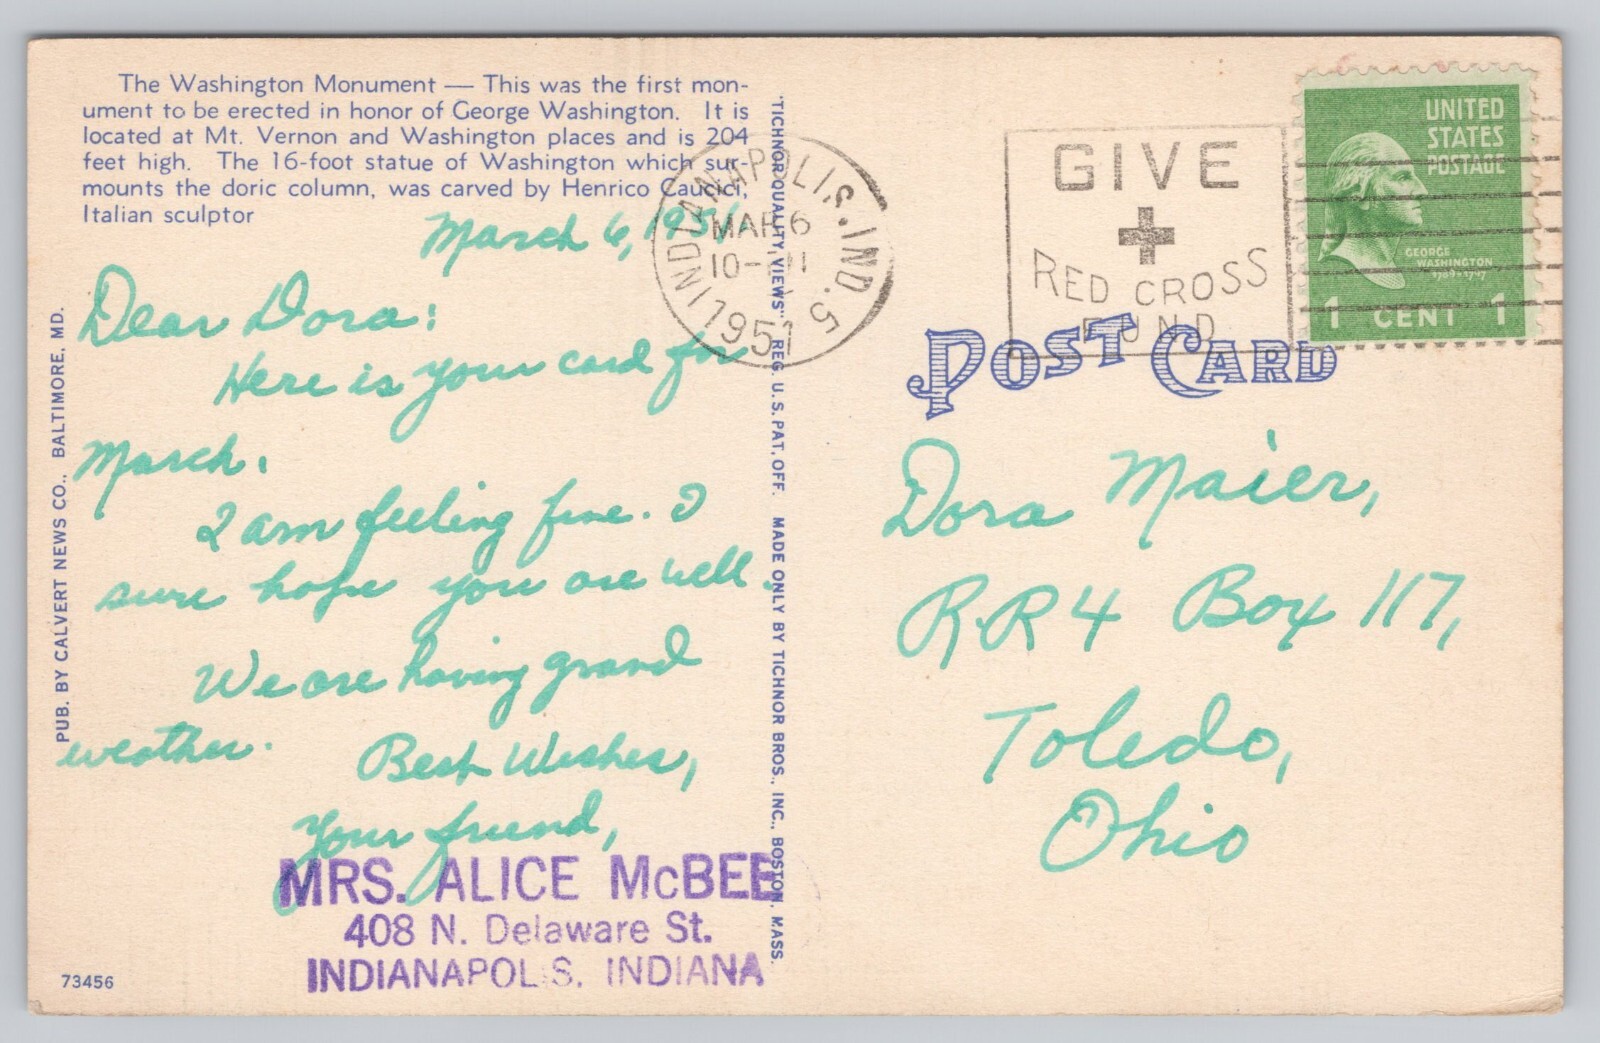 The Washington Monument — This was the first mon-
ument to be erected in honor of George Washington. It is
located at Mt. Vernon and Washington places and is 204
feet high. The 16-foot statue of Washington which sur-
mounts the doric column, was carved by Henrico Caucici,
Italian sculptor
March 6, 1951
Dear Dora:
Here is your card for
March.
I am feeling fine. I
sure hope you are well.
We are having grand
weather.
Best Wishes,
Your friend,
MRS. ALICE McBEE
408 N. Delaware St.
INDIANAPOLIS, INDIANA
73456
PUB. BY CALVERT NEWS CO., BALTIMORE, MD.
"TICHNOR QUALITY VIEWS" REG. U. S. PAT. OFF. MADE ONLY BY TICHNOR BROS., INC., BOSTON, MASS.
INDIANAPOLIS, IND. 5
MAR 6
10-
1951
GIVE
RED CROSS
FUND
UNITED
STATES
POSTAGE
GEORGE
WASHINGTON
1789-1797
1 CENT 1
POST CARD
Dora Maier,
R.R 4 Box 117,
Toledo,
Ohio